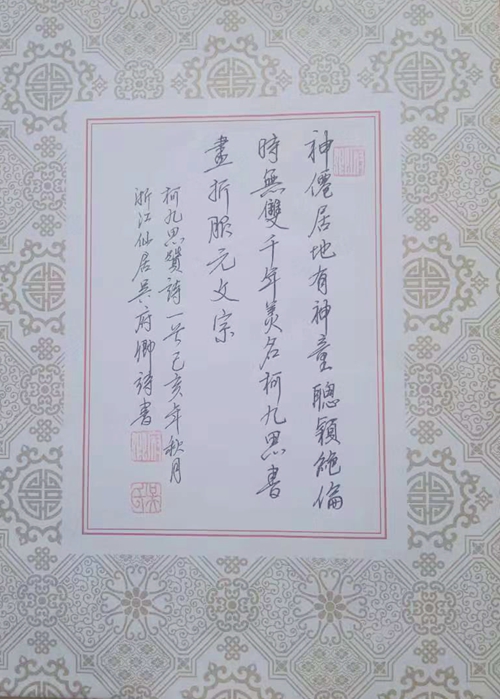 神僊居地有神童聰穎絕倫
時無雙千年美名柯九思書
畫折服元文宗
柯九思贊詩一首己亥年秋月
浙江仙居吳府卿詩書